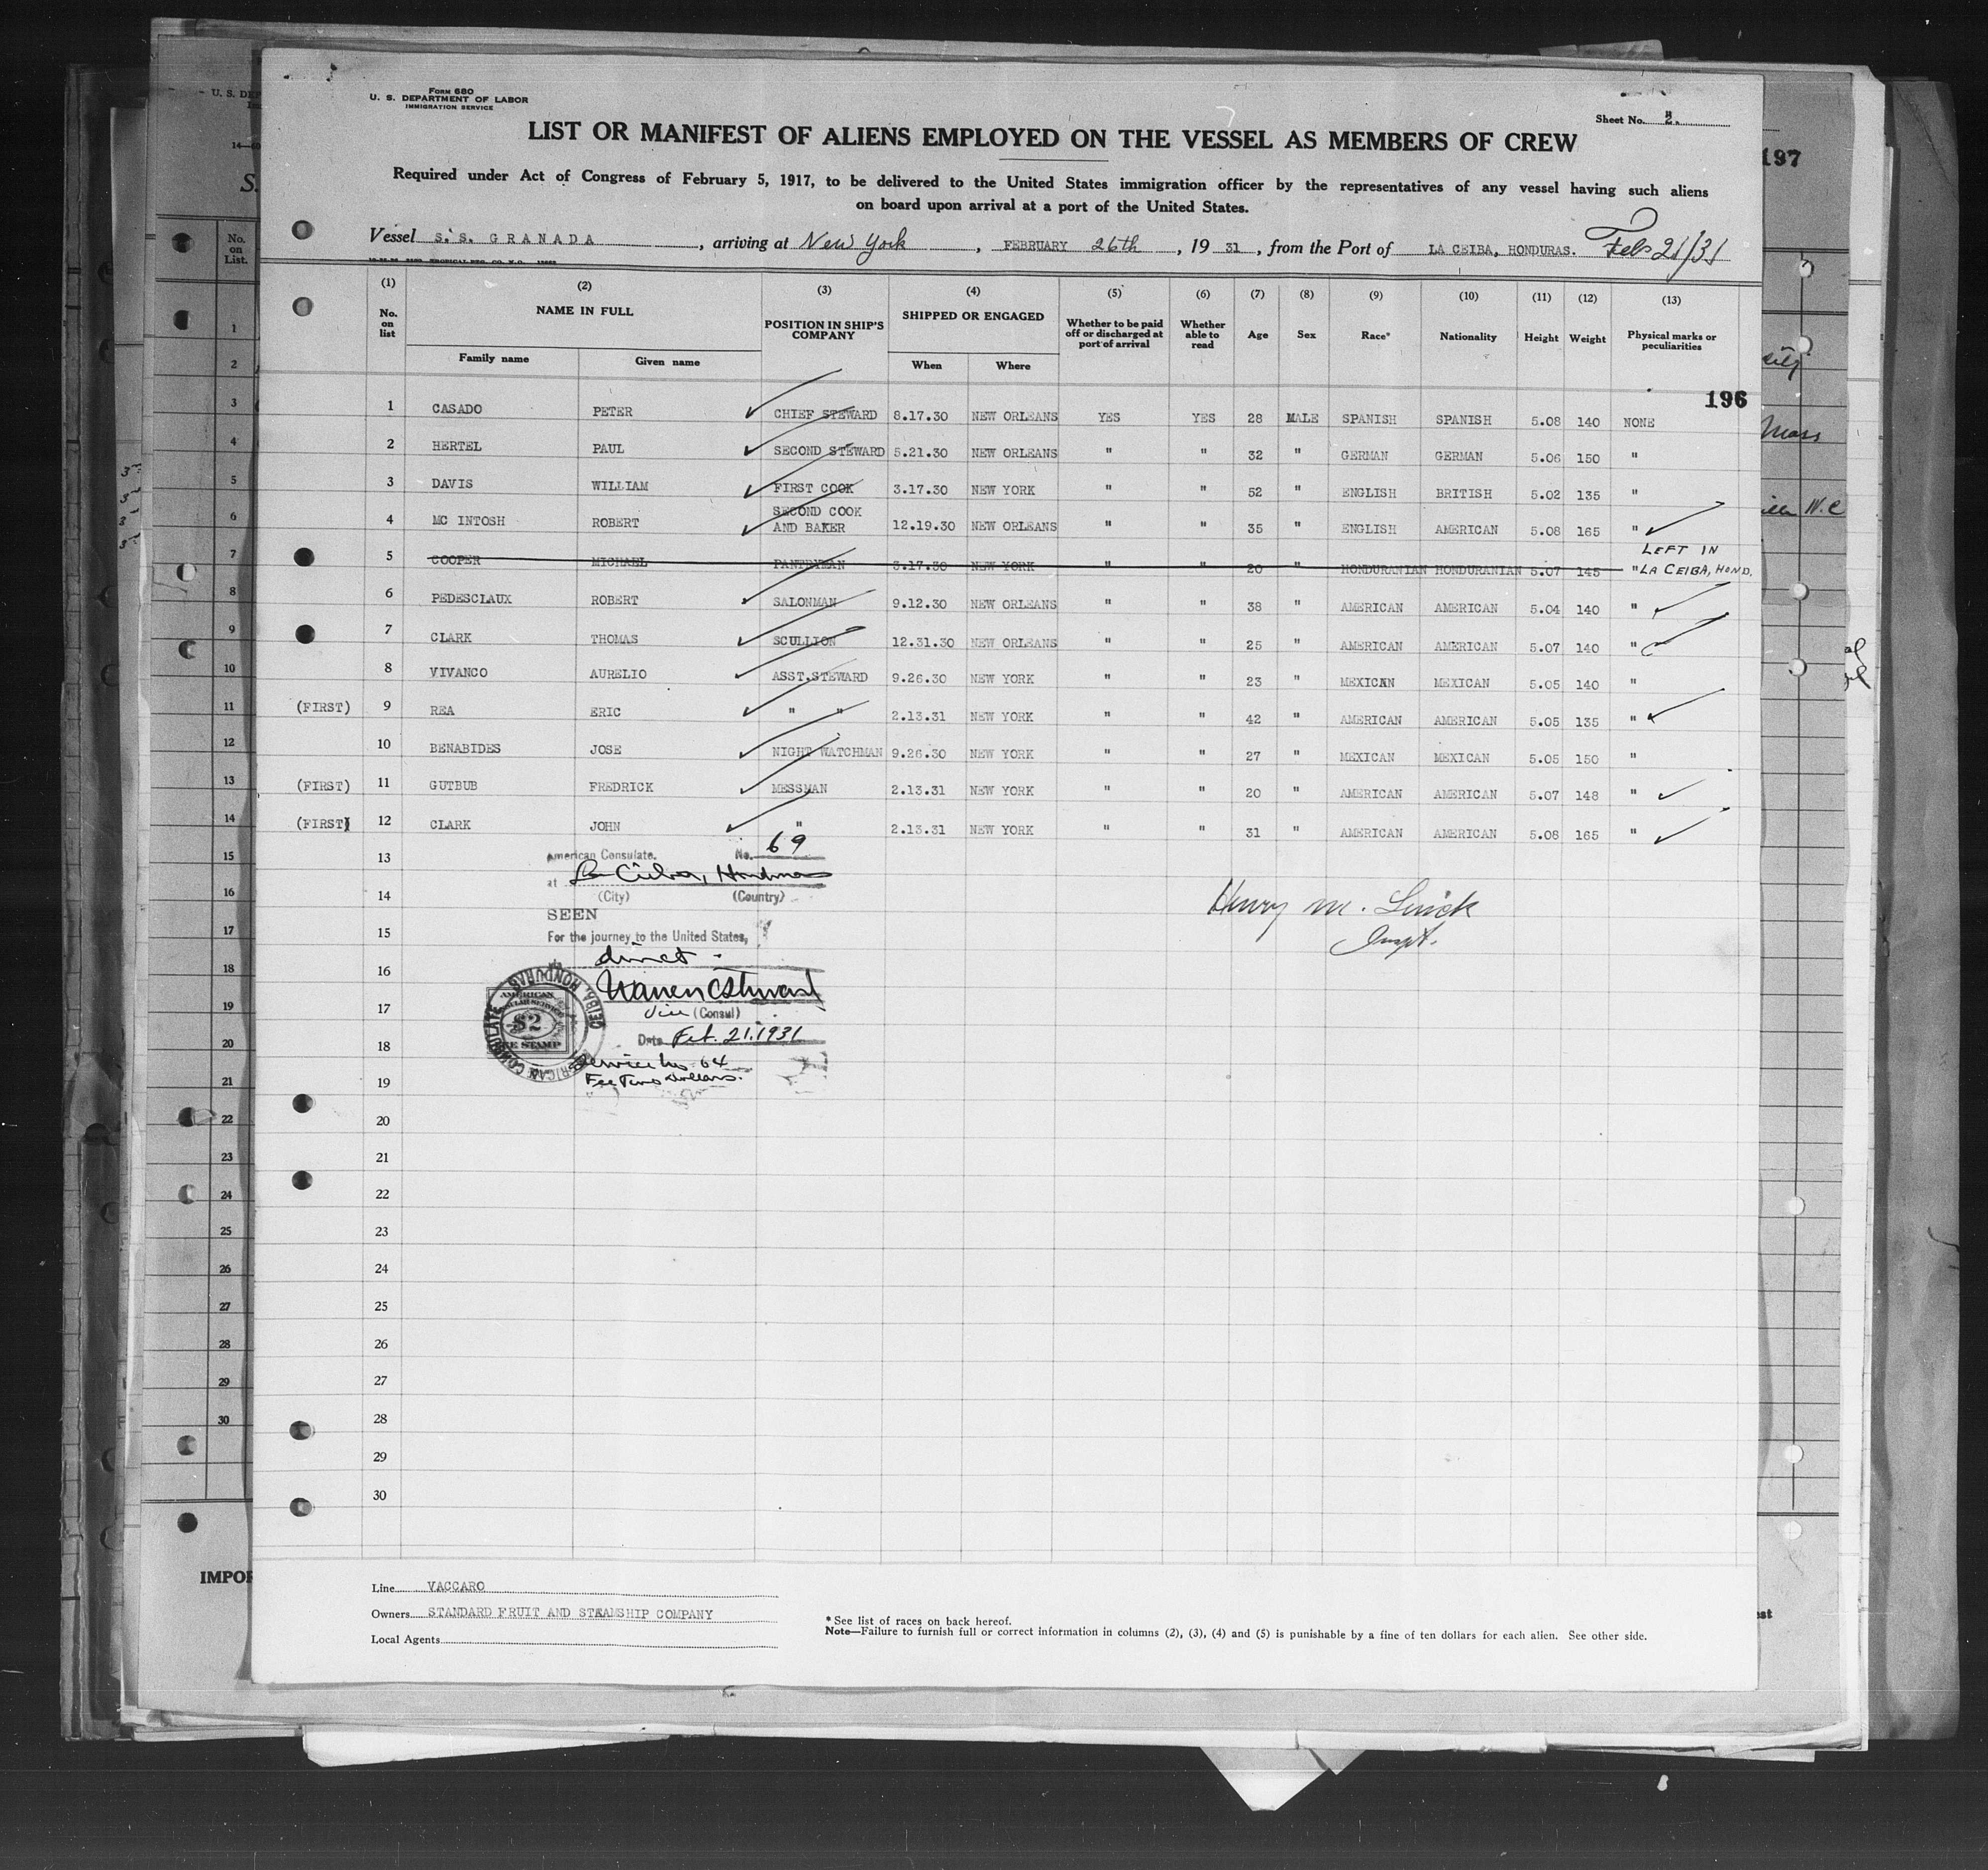 Form 680
U. S. DEPARTMENT OF LABOR
IMMIGRATION SERVICE
Sheet No. 2.
LIST OR MANIFEST OF ALIENS EMPLOYED ON THE VESSEL AS MEMBERS OF CREW
Required under Act of Congress of February 5, 1917, to be delivered to the United States immigration officer by the representatives of any vessel having such aliens
on board upon arrival at a port of the United States.
Vessel S.S. GRANADA, arriving at New York, FEBRUARY 26th, 1931, from the Port of LA CEIBA, HONDURAS. Feb 21/31
(1) (2) (3) (4) (5) (6) (7) (8) (9) (10) (11) (12) (13)
No. on list NAME IN FULL POSITION IN SHIP'S COMPANY SHIPPED OR ENGAGED Whether to be paid off or discharged at port of arrival Whether able to read Age Sex Race* Nationality Height Weight Physical marks or peculiarities
Family name Given name When Where
196
1 CASADO PETER CHIEF STEWARD 8.17.30 NEW ORLEANS YES YES 28 MALE SPANISH SPANISH 5.08 140 NONE
2 HERTEL PAUL SECOND STEWARD 5.21.30 NEW ORLEANS " " 32 " GERMAN GERMAN 5.06 150 "
3 DAVIS WILLIAM FIRST COOK 3.17.30 NEW YORK " " 52 " ENGLISH BRITISH 5.02 135 "
4 MC INTOSH ROBERT SECOND COOK AND BAKER 12.19.30 NEW ORLEANS " " 35 " ENGLISH AMERICAN 5.08 165 "
5 COOPER MICHAEL PANTRYMAN 3.17.30 NEW YORK " " 20 " HONDURANIAN HONDURANIAN 5.07 145 " LEFT IN LA CEIBA, HOND.
6 PEDESCLAUX ROBERT SALONMAN 9.12.30 NEW ORLEANS " " 38 " AMERICAN AMERICAN 5.04 140 "
7 CLARK THOMAS SCULLION 12.31.30 NEW ORLEANS " " 25 " AMERICAN AMERICAN 5.07 140 "
8 VIVANCO AURELIO ASST.STEWARD 9.26.30 NEW YORK " " 23 " MEXICAN MEXICAN 5.05 140 "
(FIRST) 9 REA ERIC " " 2.13.31 NEW YORK " " 42 " AMERICAN AMERICAN 5.05 135 "
10 BENABIDES JOSE NIGHT WATCHMAN 9.26.30 NEW YORK " " 27 " MEXICAN MEXICAN 5.05 150 "
(FIRST) 11 GUTBUB FREDRICK MESSMAN 2.13.31 NEW YORK " " 20 " AMERICAN AMERICAN 5.07 148 "
(FIRST) 12 CLARK JOHN " 2.13.31 NEW YORK " " 31 " AMERICAN AMERICAN 5.08 165 "
13
14
15
16
17
18
19
20
21
22
23
24
25
26
27
28
29
30
American Consulate. No. 69
at La Ceiba, Honduras
(City) (Country)
SEEN
For the journey to the United States,
direct
Vice (Consul)
Date Feb. 21, 1931
Service No. 64
Fee Two Dollars.
AMERICAN CONSULATE CEIBA, HONDURAS
$2
FEE STAMP
Henry M.
Inspt.
Line VACCARO
Owners STANDARD FRUIT AND STEAMSHIP COMPANY
Local Agents
* See list of races on back hereof.
Note—Failure to furnish full or correct information in columns (2), (3), (4) and (5) is punishable by a fine of ten dollars for each alien. See other side.
197